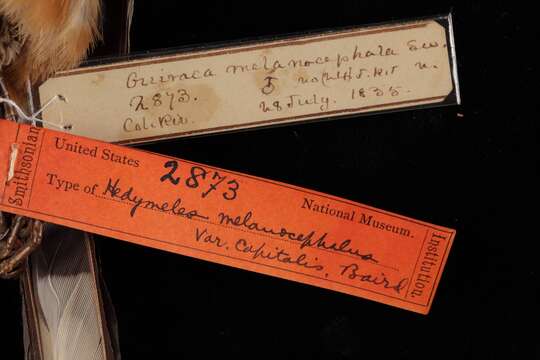 Guiraca melanocephala Sw.
2873.
Col. Riv. 28 July. 1835.
United States 2873
National Museum.
Type of Hedymeles melanocephalus
Var. Capitalis. Baird
Smithsonian
Institution.